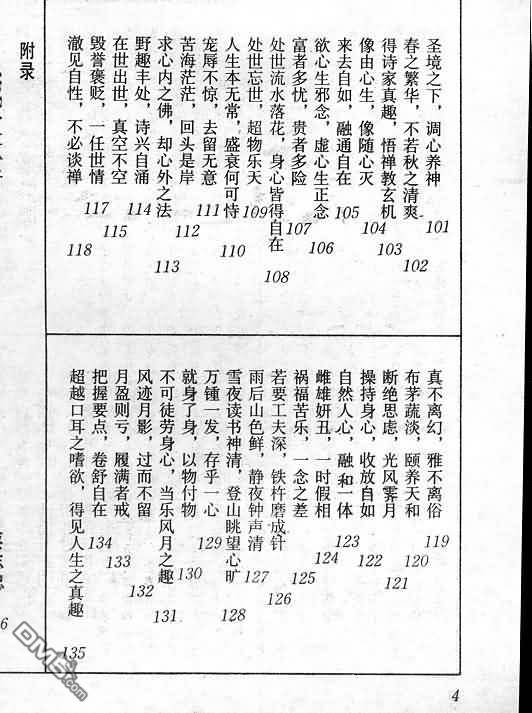 圣境之下，调心养神 101
春之繁华，不若秋之清爽 102
得诗家真趣，悟禅教玄机 103
像由心生，像随心灭 104
来去自如，融通自在 105
欲心生邪念，虚心生正念 106
富者多忧，贵者多险 107
处世流水落花，身心皆得自在 108
处世忘世，超物乐天 109
人生本无常，盛衰何可恃 110
宠辱不惊，去留无意 111
苦海茫茫，回头是岸 112
求心内之佛，却心外之法 113
野趣丰处，诗兴自涌 114
在世出世，真空不空 115
毁誉褒贬，一任世情 117
澈见自性，不必谈禅 118
真不离幻，雅不离俗 119
布茅蔬淡，颐养天和 120
断绝思虑，光风霁月 121
操持身心，收放自如 122
自然人心，融和一体 123
雌雄妍丑，一时假相 124
祸福苦乐，一念之差 125
若要工夫深，铁杵磨成针 126
雨后山色鲜，静夜钟声清 127
雪夜读书神清，登山眺望心旷 128
万锺一发，存乎一心 129
就身了身，以物付物 130
不可徒劳身心，当乐风月之趣 131
风迹月影，过而不留 132
月盈则亏，履满者戒 133
把握要点，卷舒自在 134
超越口耳之嗜欲，得见人生之真趣 135
附录
6
4